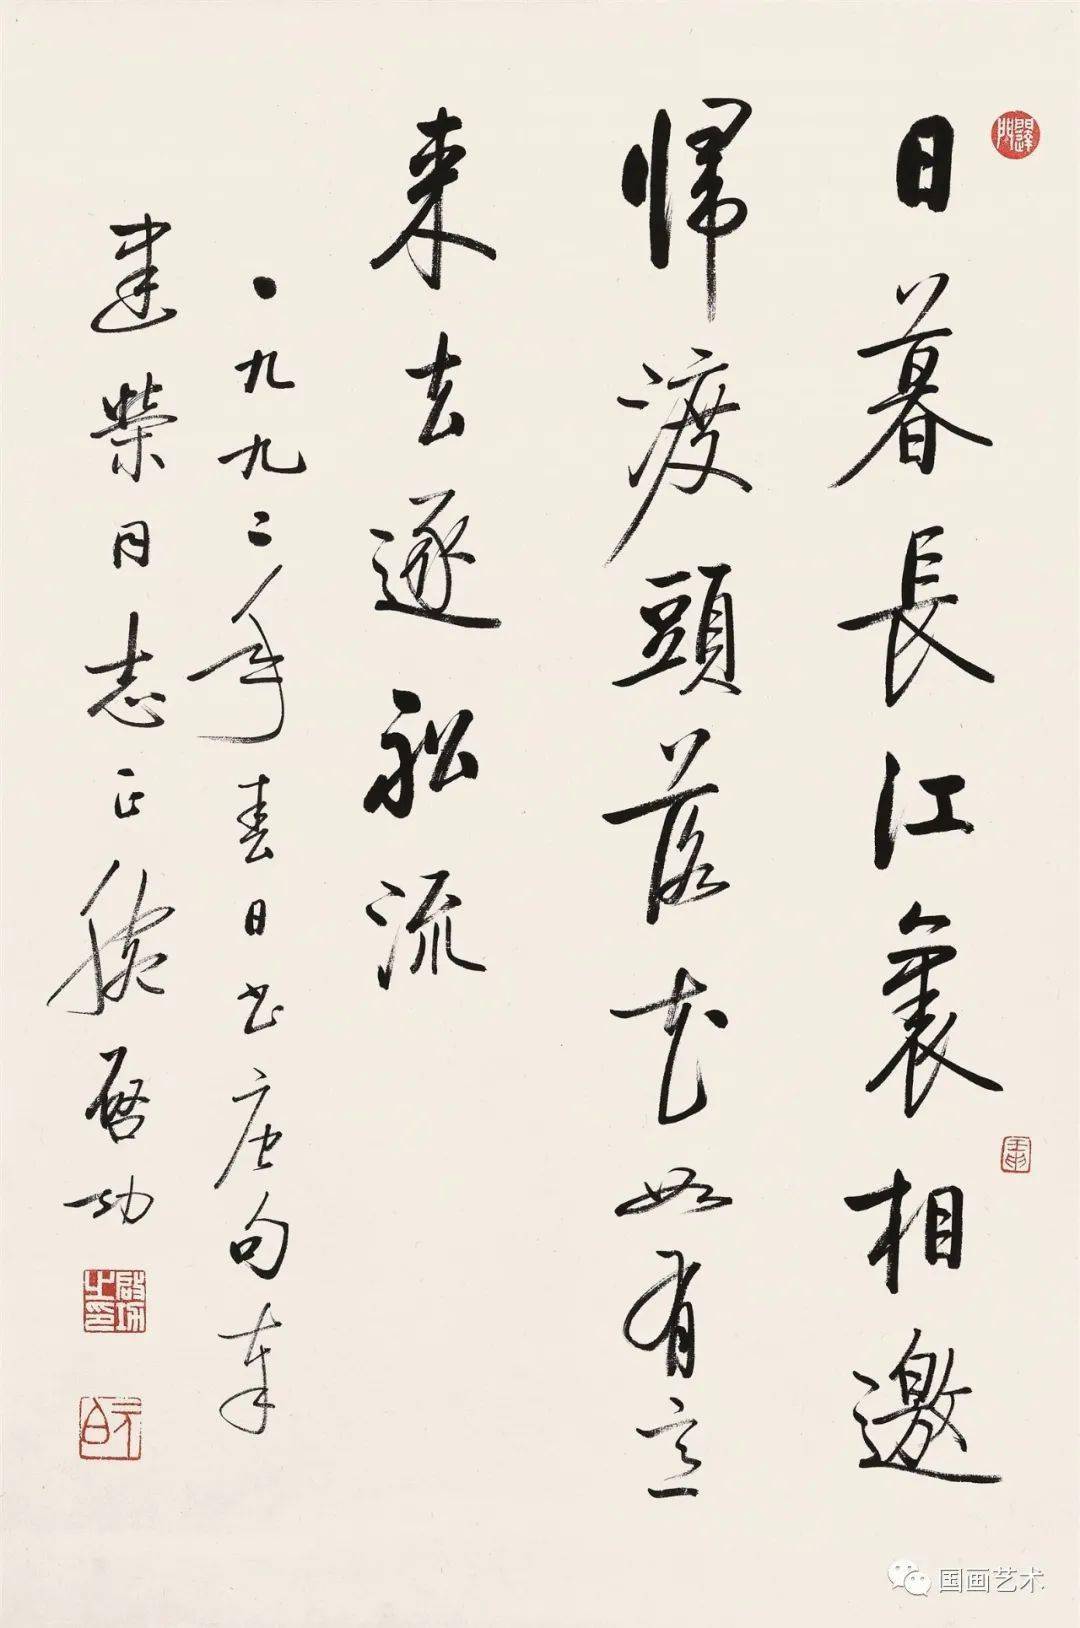 日暮長江裏相邀
歸渡頭落花如有意
来去逐船流
一九九二年春日書唐句奉
建榮同志正腕 啓功
啟功之印
元白
国画艺术